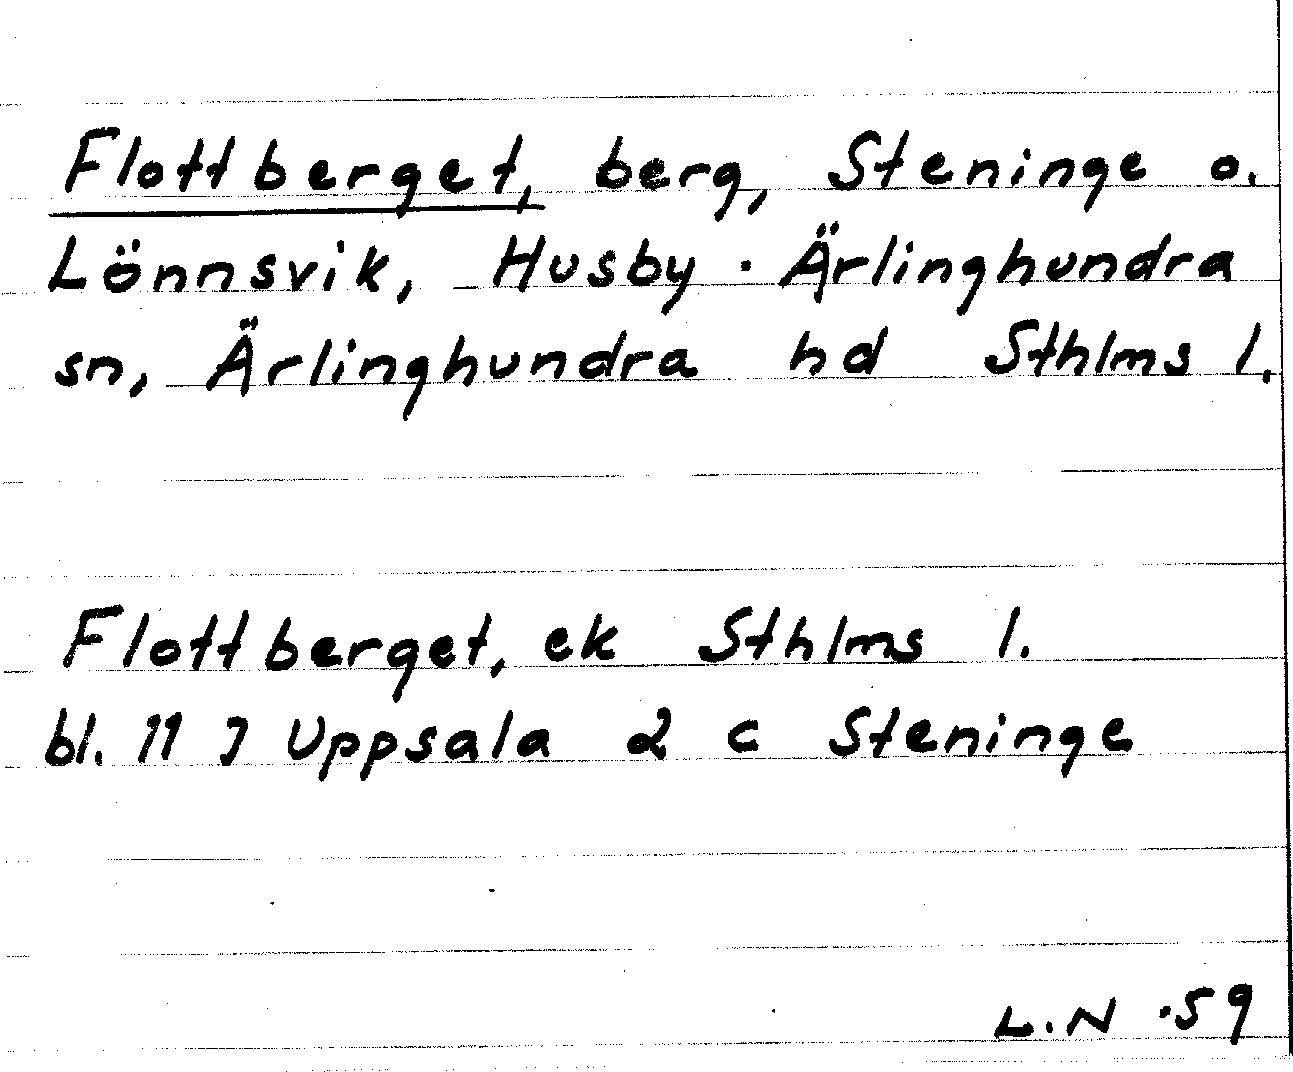 Flottberget, berg, Steninge o.
Lönnsvik, Husby - Ärlinghundra
sn, Ärlinghundra hd Sthlms l.
Flottberget, ek Sthlms l.
bl. 11 J Uppsala 2 c Steninge
L.N -59